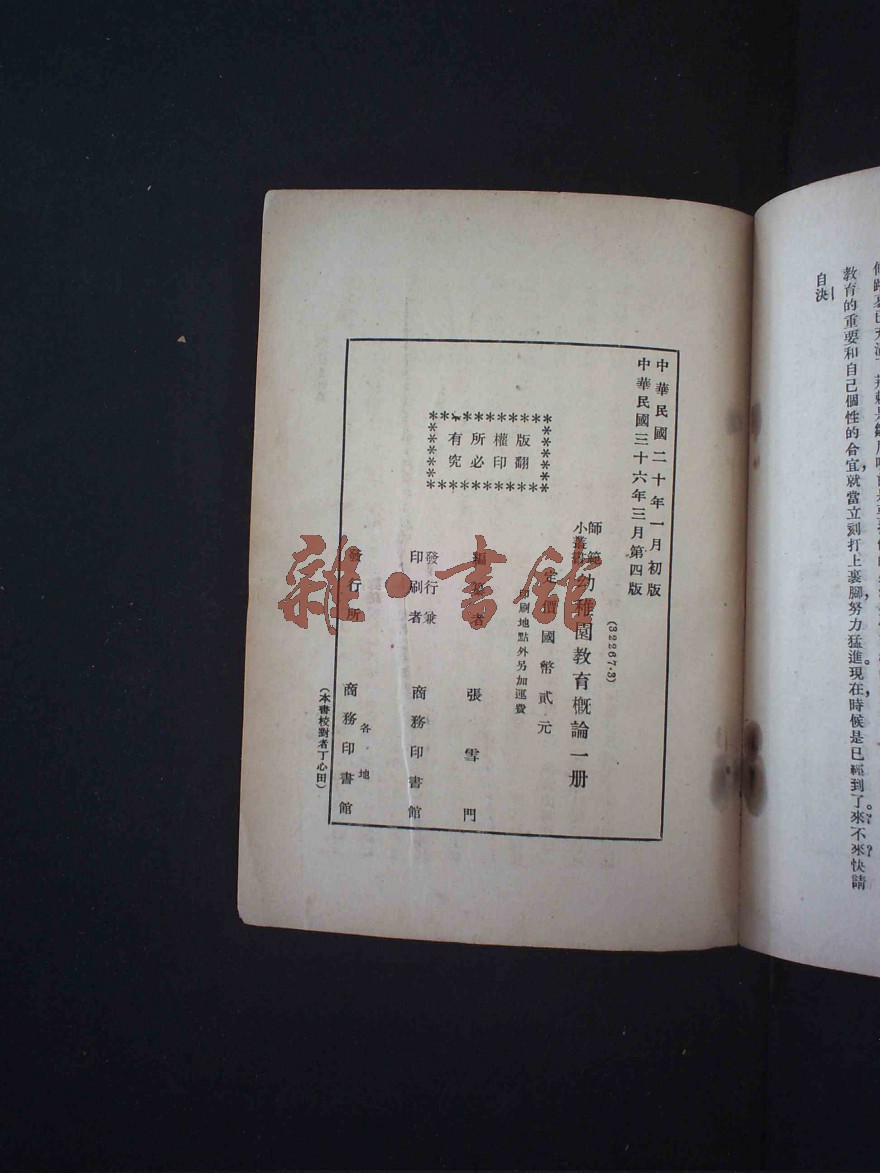 教育的重要和自己個性的合宜，就當立刻打上裹腳努力猛進。現在時候是已經到了，來不來？快請
自決！
中華民國二十年一月初版
中華民國三十六年三月第四版
(32267·3)
師範小叢書 幼稚園教育概論一册
定價國幣貳元
印刷地點外另加運費
版權所有
翻印必究
編纂者 張雪門
發行兼印刷者 商務印書館
發行所 各地 商務印書館
(本書校對者丁心田)
雜·書館